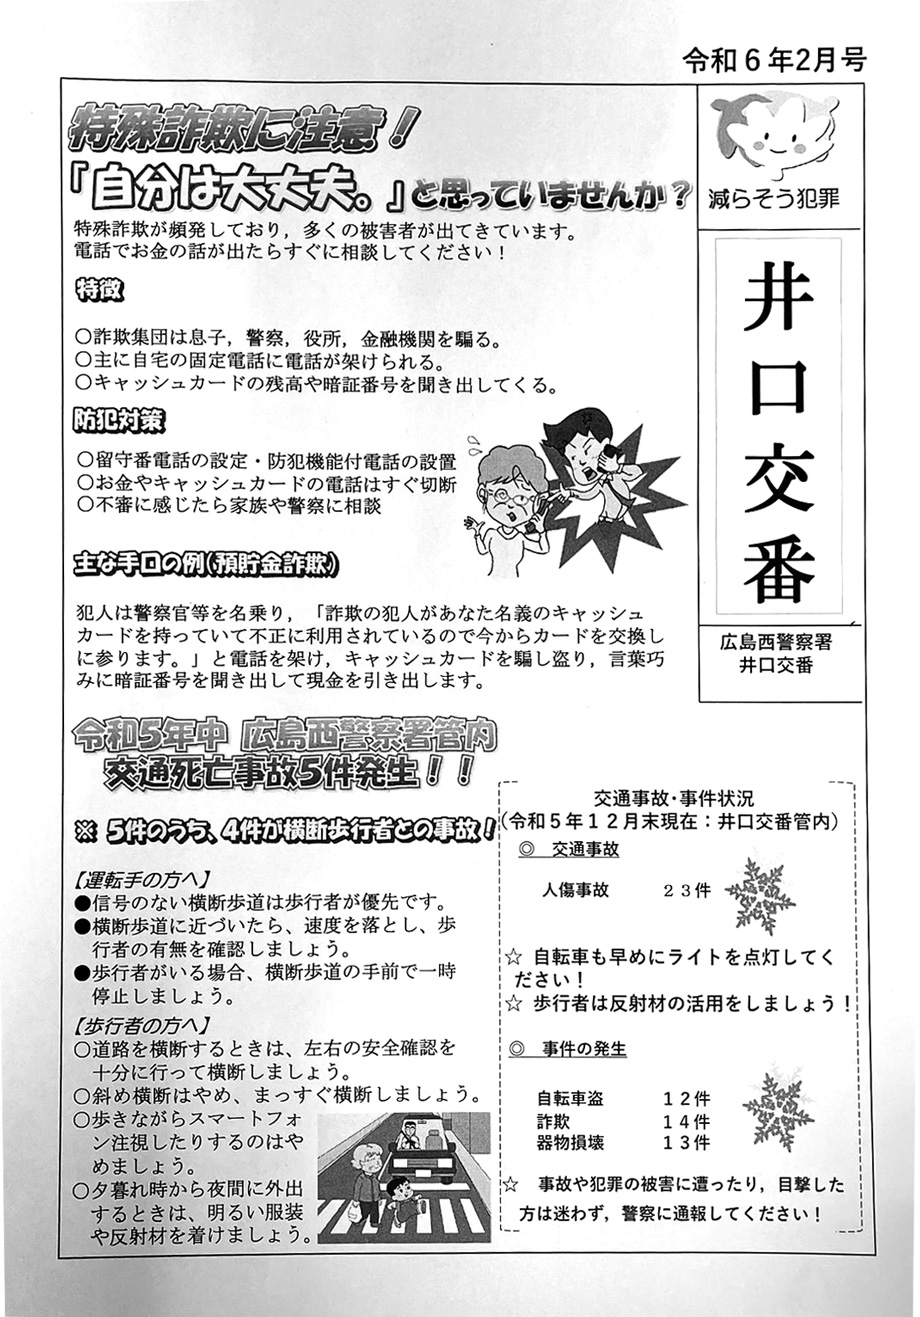 令和６年2月号
特殊詐欺に注意！
「自分は大丈夫。」と思っていませんか？
特殊詐欺が頻発しており，多くの被害者が出てきています。
電話でお金の話が出たらすぐに相談してください！
特徴
○詐欺集団は息子，警察，役所，金融機関を騙る。
○主に自宅の固定電話に電話が架けられる。
○キャッシュカードの残高や暗証番号を聞き出してくる。
防犯対策
○留守番電話の設定・防犯機能付電話の設置
○お金やキャッシュカードの電話はすぐ切断
○不審に感じたら家族や警察に相談
主な手口の例（預貯金詐欺）
犯人は警察官等を名乗り，「詐欺の犯人があなた名義のキャッシュ
カードを持っていて不正に利用されているので今からカードを交換し
に参ります。」と電話を架け，キャッシュカードを騙し盗り，言葉巧
みに暗証番号を聞き出して現金を引き出します。
減らそう犯罪
井口交番
広島西警察署
井口交番
令和5年中 広島西警察署管内
交通死亡事故5件発生！！
※ 5件のうち、4件が横断歩行者との事故！
【運転手の方へ】
●信号のない横断歩道は歩行者が優先です。
●横断歩道に近づいたら、速度を落とし、歩
行者の有無を確認しましょう。
●歩行者がいる場合、横断歩道の手前で一時
停止しましょう。
【歩行者の方へ】
○道路を横断するときは、左右の安全確認を
十分に行って横断しましょう。
○斜め横断はやめ、まっすぐ横断しましょう。
○歩きながらスマートフォ
ン注視したりするのはや
めましょう。
○夕暮れ時から夜間に外出
するときは、明るい服装
や反射材を着けましょう。
交通事故･事件状況
（令和５年１２月末現在：井口交番管内）
◎ 交通事故
人傷事故 ２３件
☆ 自転車も早めにライトを点灯してく
ださい！
☆ 歩行者は反射材の活用をしましょう！
◎ 事件の発生
自転車盗 １２件
詐欺 １４件
器物損壊 １３件
☆ 事故や犯罪の被害に遭ったり，目撃した
方は迷わず，警察に通報してください！